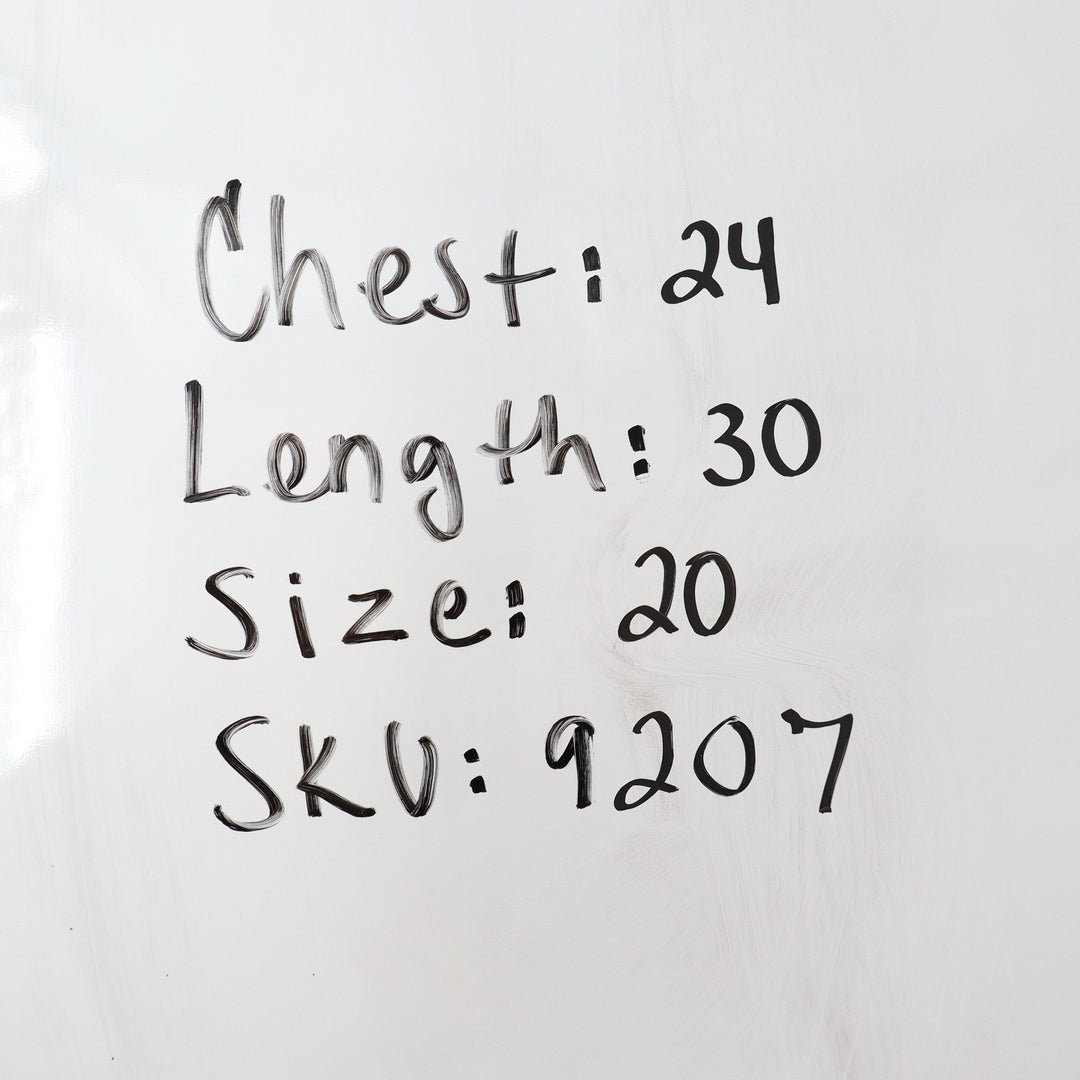 Chest: 24
Length: 30
Size: 20
SKU: 9207